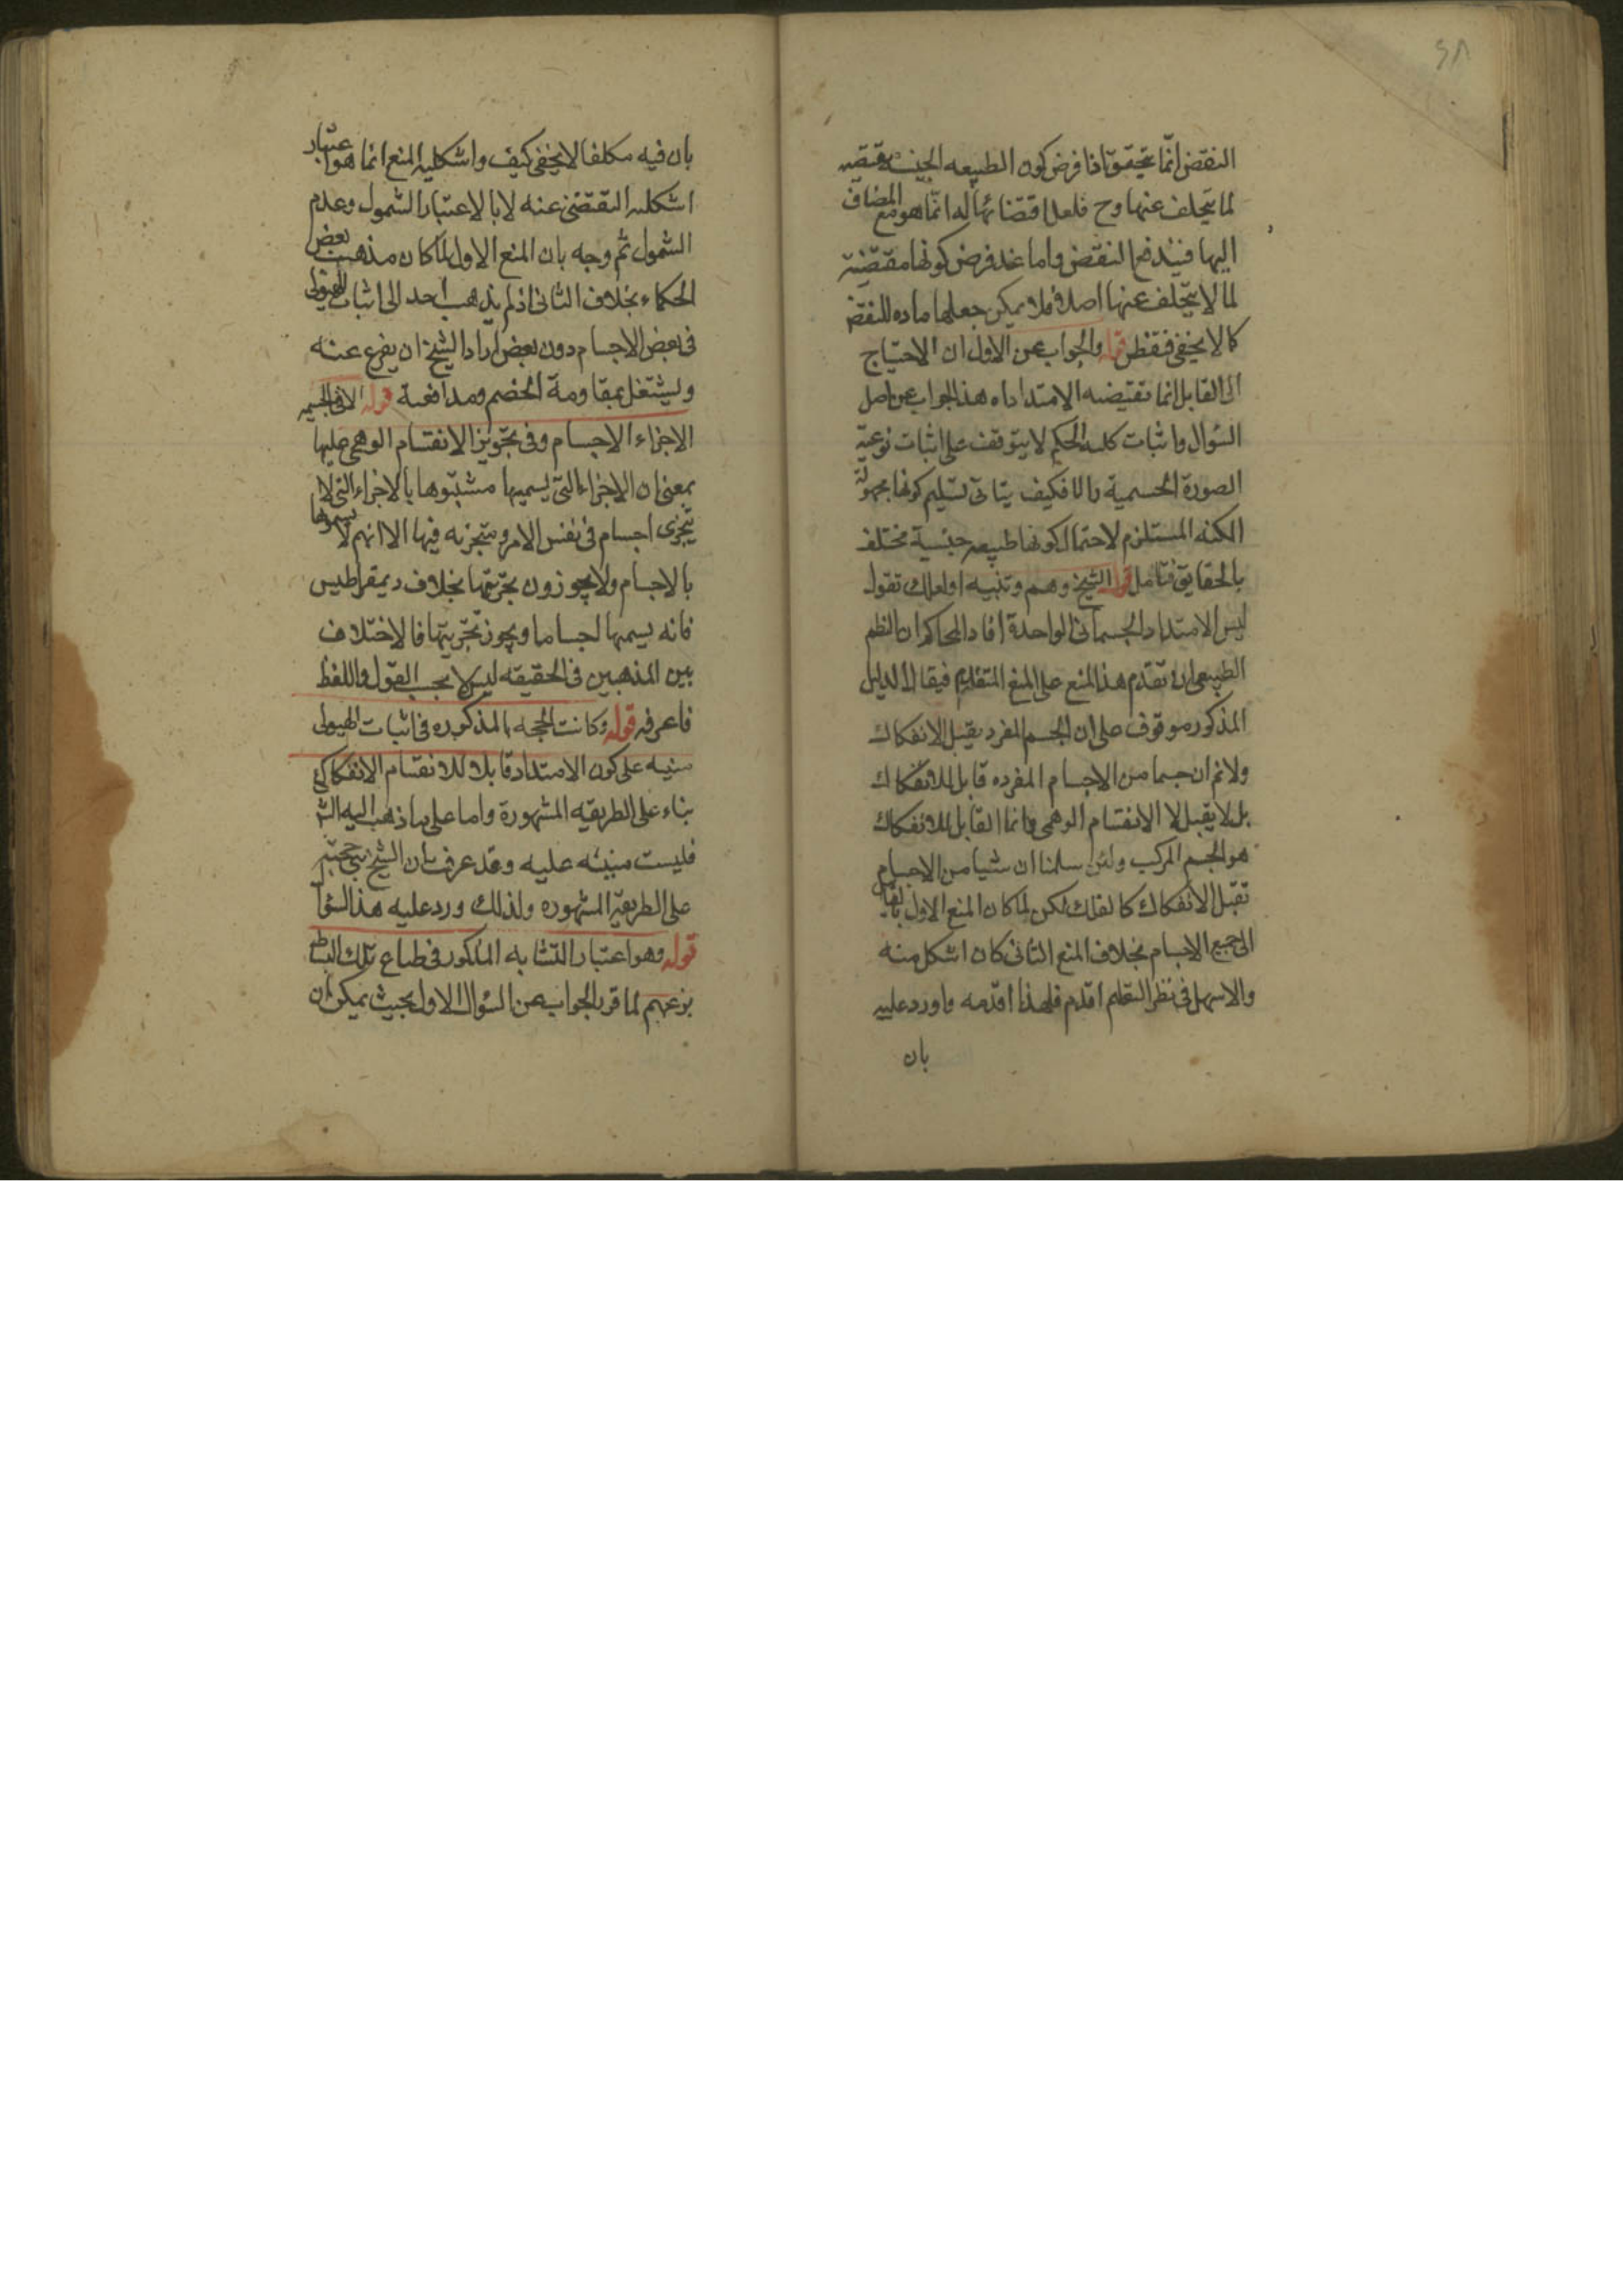 ٢٨
النقض انما يتحقق اذا فرض كون الطبيعه الجنسيه مقتضيه
لما يتخلف عنها وح فلعل اقتضائها له انما هو مع المضاف
اليها فيندفع النقض واما عند فرض كونها مقتضية
لما لا يتخلف عنها اصلا فلا يمكن جعلها ماده للنقض
كما لا يخفى فتفطن قوله والجواب عن الاول ان الاحتياج
الى القابل انما تقتضيه الامتداد اه هذا الجواب عن اصل
السؤال واثبات كلية الحكم لا يتوقف على اثبات نوعية
الصورة الجسمية والا فكيف يتاتى تسليم كونها مجهولة
الكنه المستلزم لاحتمال كونها طبيعه جنسية مختلف
بالحقايق فتامل قوله الشيخ وهم وتنبيه او لعلك تقول
ليس الامتداد الجسماني الواحدة افاد المحاكم ان النظم
الطبيعى ان تقدم هذا المنع على المنع المتقدم فيقال الدليل
المذكور موقوف على ان الجسم المفرد يقبل الانفكاك
ولانم ان جسما من الاجسام المفرده قابل للانفكاك
بل لا يقبل الا الانقسام الوهمى وانما القابل للانفكاك
هو الجسم المركب ولئن سلمنا ان شيا من الاجسام
تقبل الانفكاك كالفلك لكن لما كان المنع الاول بالقياس
الى جميع الاجسام بخلاف المنع الثانى كان اشكل منه
والاسهل فى نظر التعلم اقدم فلهذا اقدمه واورد عليه
بان
بان فيه تكلفا لا يخفى كيف واشكلية المنع انما هو اعتبار
اشكلية التفصى عنه لا بالاعتبار الشمول وعدم
الشمول ثم وجه بان المنع الاول لما كان مذهب بعض
الحكماء بخلاف الثانى اذ لم يذهب احد الى اثبات الهيولى
فى بعض الاجسام دون بعض اراد الشيخ ان يفرع عنه
ويشتغل بمقاومة الخصم ومدافعة قوله الا فى تسميه
الاجزاء الاجسام وفى تجويز الانقسام الوهمى عليها
بمعنى ان الاجزاء التى يسميها مثبتوها بالاجزاء التى لا
يتجزى اجسام فى نفس الامر ومتجزيه فيها الا انهم لا يسمونها
بالاجسام ولا يجوزون تجزيتها بخلاف ديمقراطيس
فانه يسميها اجساما ويجوز تجزيتها فالاختلاف
بين المذهبين فى الحقيقه ليس الا بحسب القول واللفظ
فاعرفه قوله وكانت الحجه المذكوره فى اثبات الهيولى
مبنيه على كون الامتداد قابلا للانقسام الانفكاكى
بناء على الطريقه المشهورة واما على ما ذهب اليه الش
فليست مبنيه عليه وقد عرفت ان الشيخ بنى حجته
على الطريقة المشهوره ولذلك ورد عليه هذا السؤال
قوله وهو اعتبار التشابه المذكور فى طباع تلك البسائط
بزعمهم لما قرر الجواب عن السؤال الاول بحيث يمكن ان